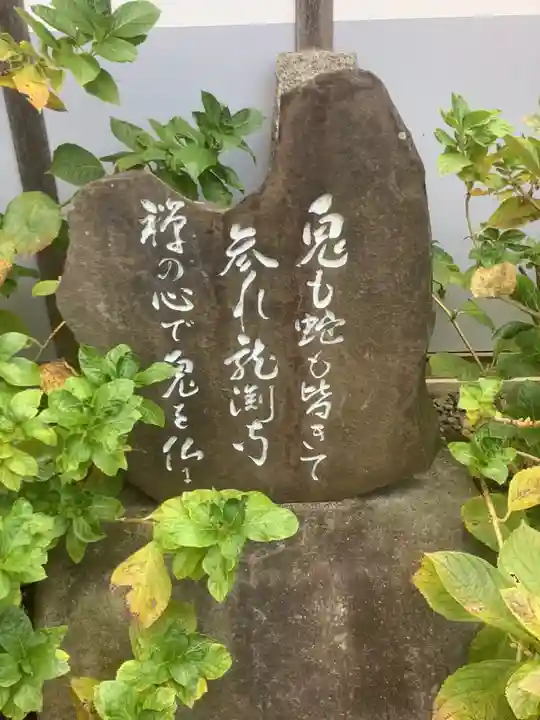 鬼も蛇も皆きて
参れ龍渕寺
禅の心で鬼を仏に